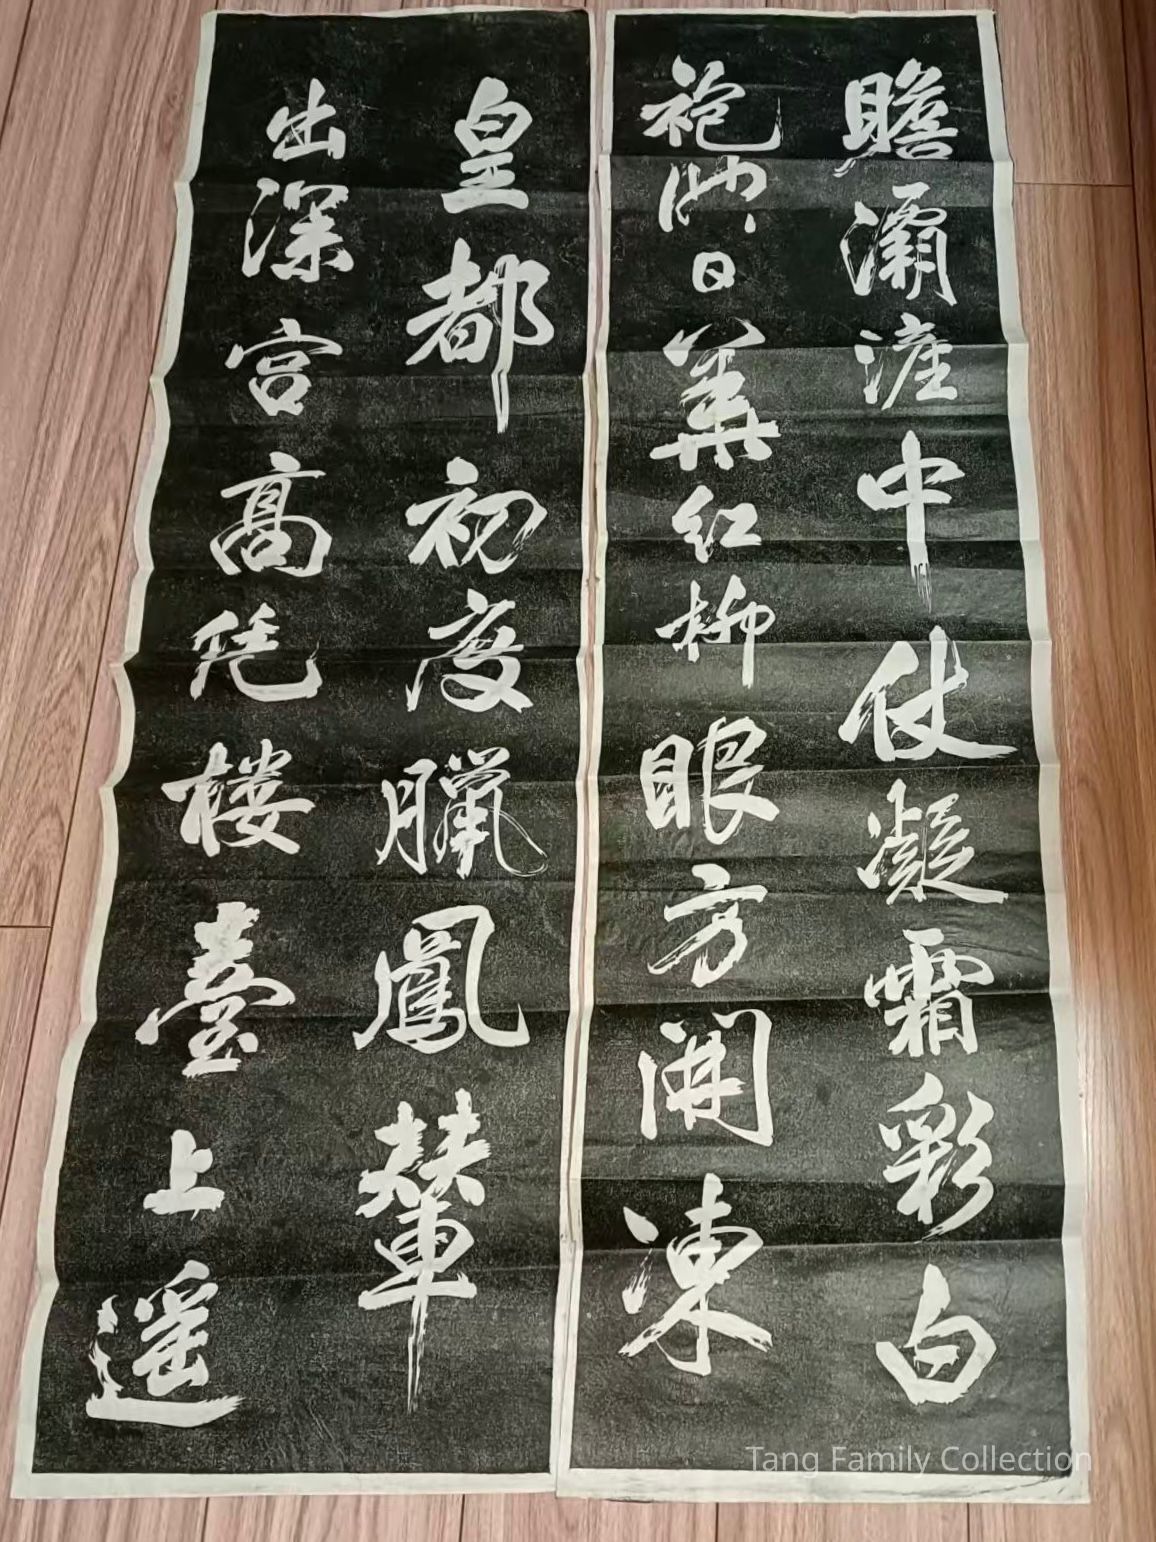 瞻灞滻中仗凝霜彩白
袍映日華紅柳眼方開凍
皇都初度臘鳳輦
出深宮高凭楼臺上遥
Tang Family Collection